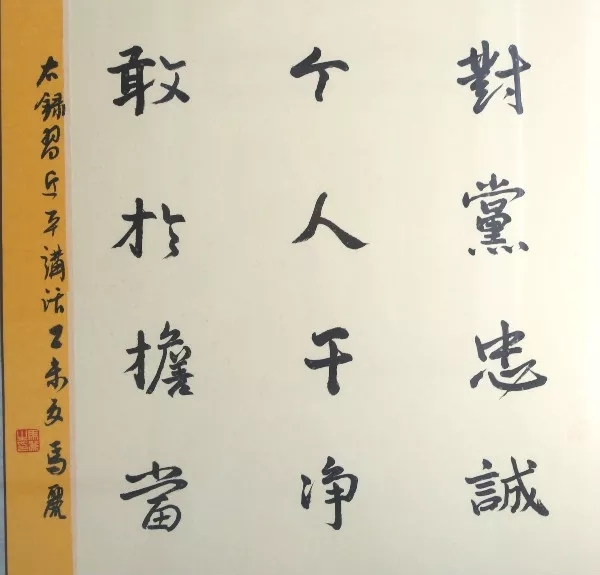 對黨忠誠
个人干净
敢於擔當
右録習近平講話 乙未夏 馬麗